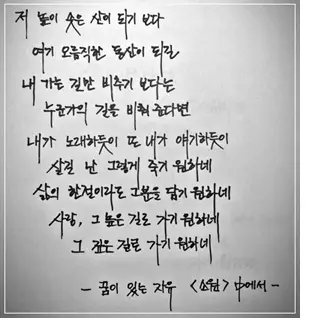 저 높이 솟은 산이 되기 보다
여기 오름직한 동산이 되길
내 가는 길만 비추기 보다는
누군가의 길을 비춰 준다면
내가 노래하듯이 또 내가 얘기하듯이
살길 난 그렇게 죽기 원하네
삶의 한절이라도 그분을 닮기 원하네
사랑, 그 높은 길로 가기 원하네
그 깊은 길로 가기 원하네
- 꿈이 있는 자유 <소원> 中에서 -